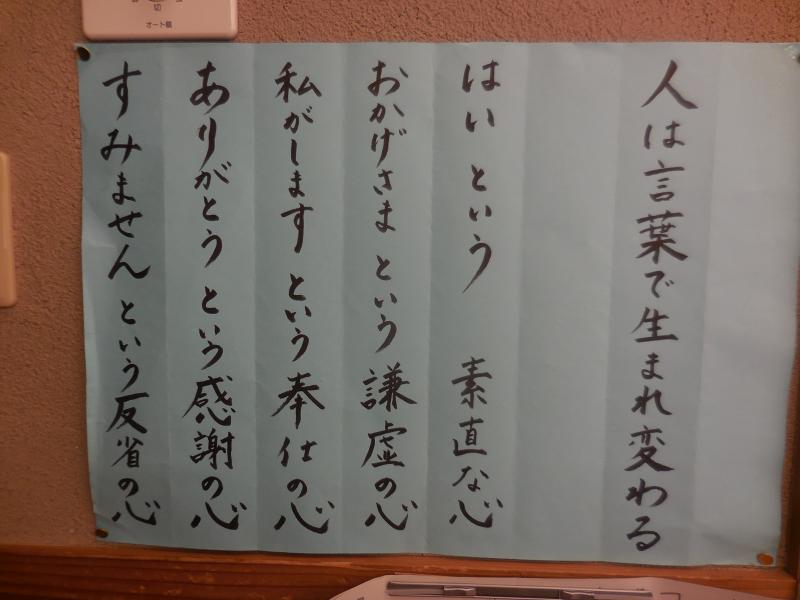 切
オート機
人は言葉で生まれ変わる
はい という 素直な心
おかげさま という 謙虚の心
私がします という 奉仕の心
ありがとう という 感謝の心
すみません という 反省の心